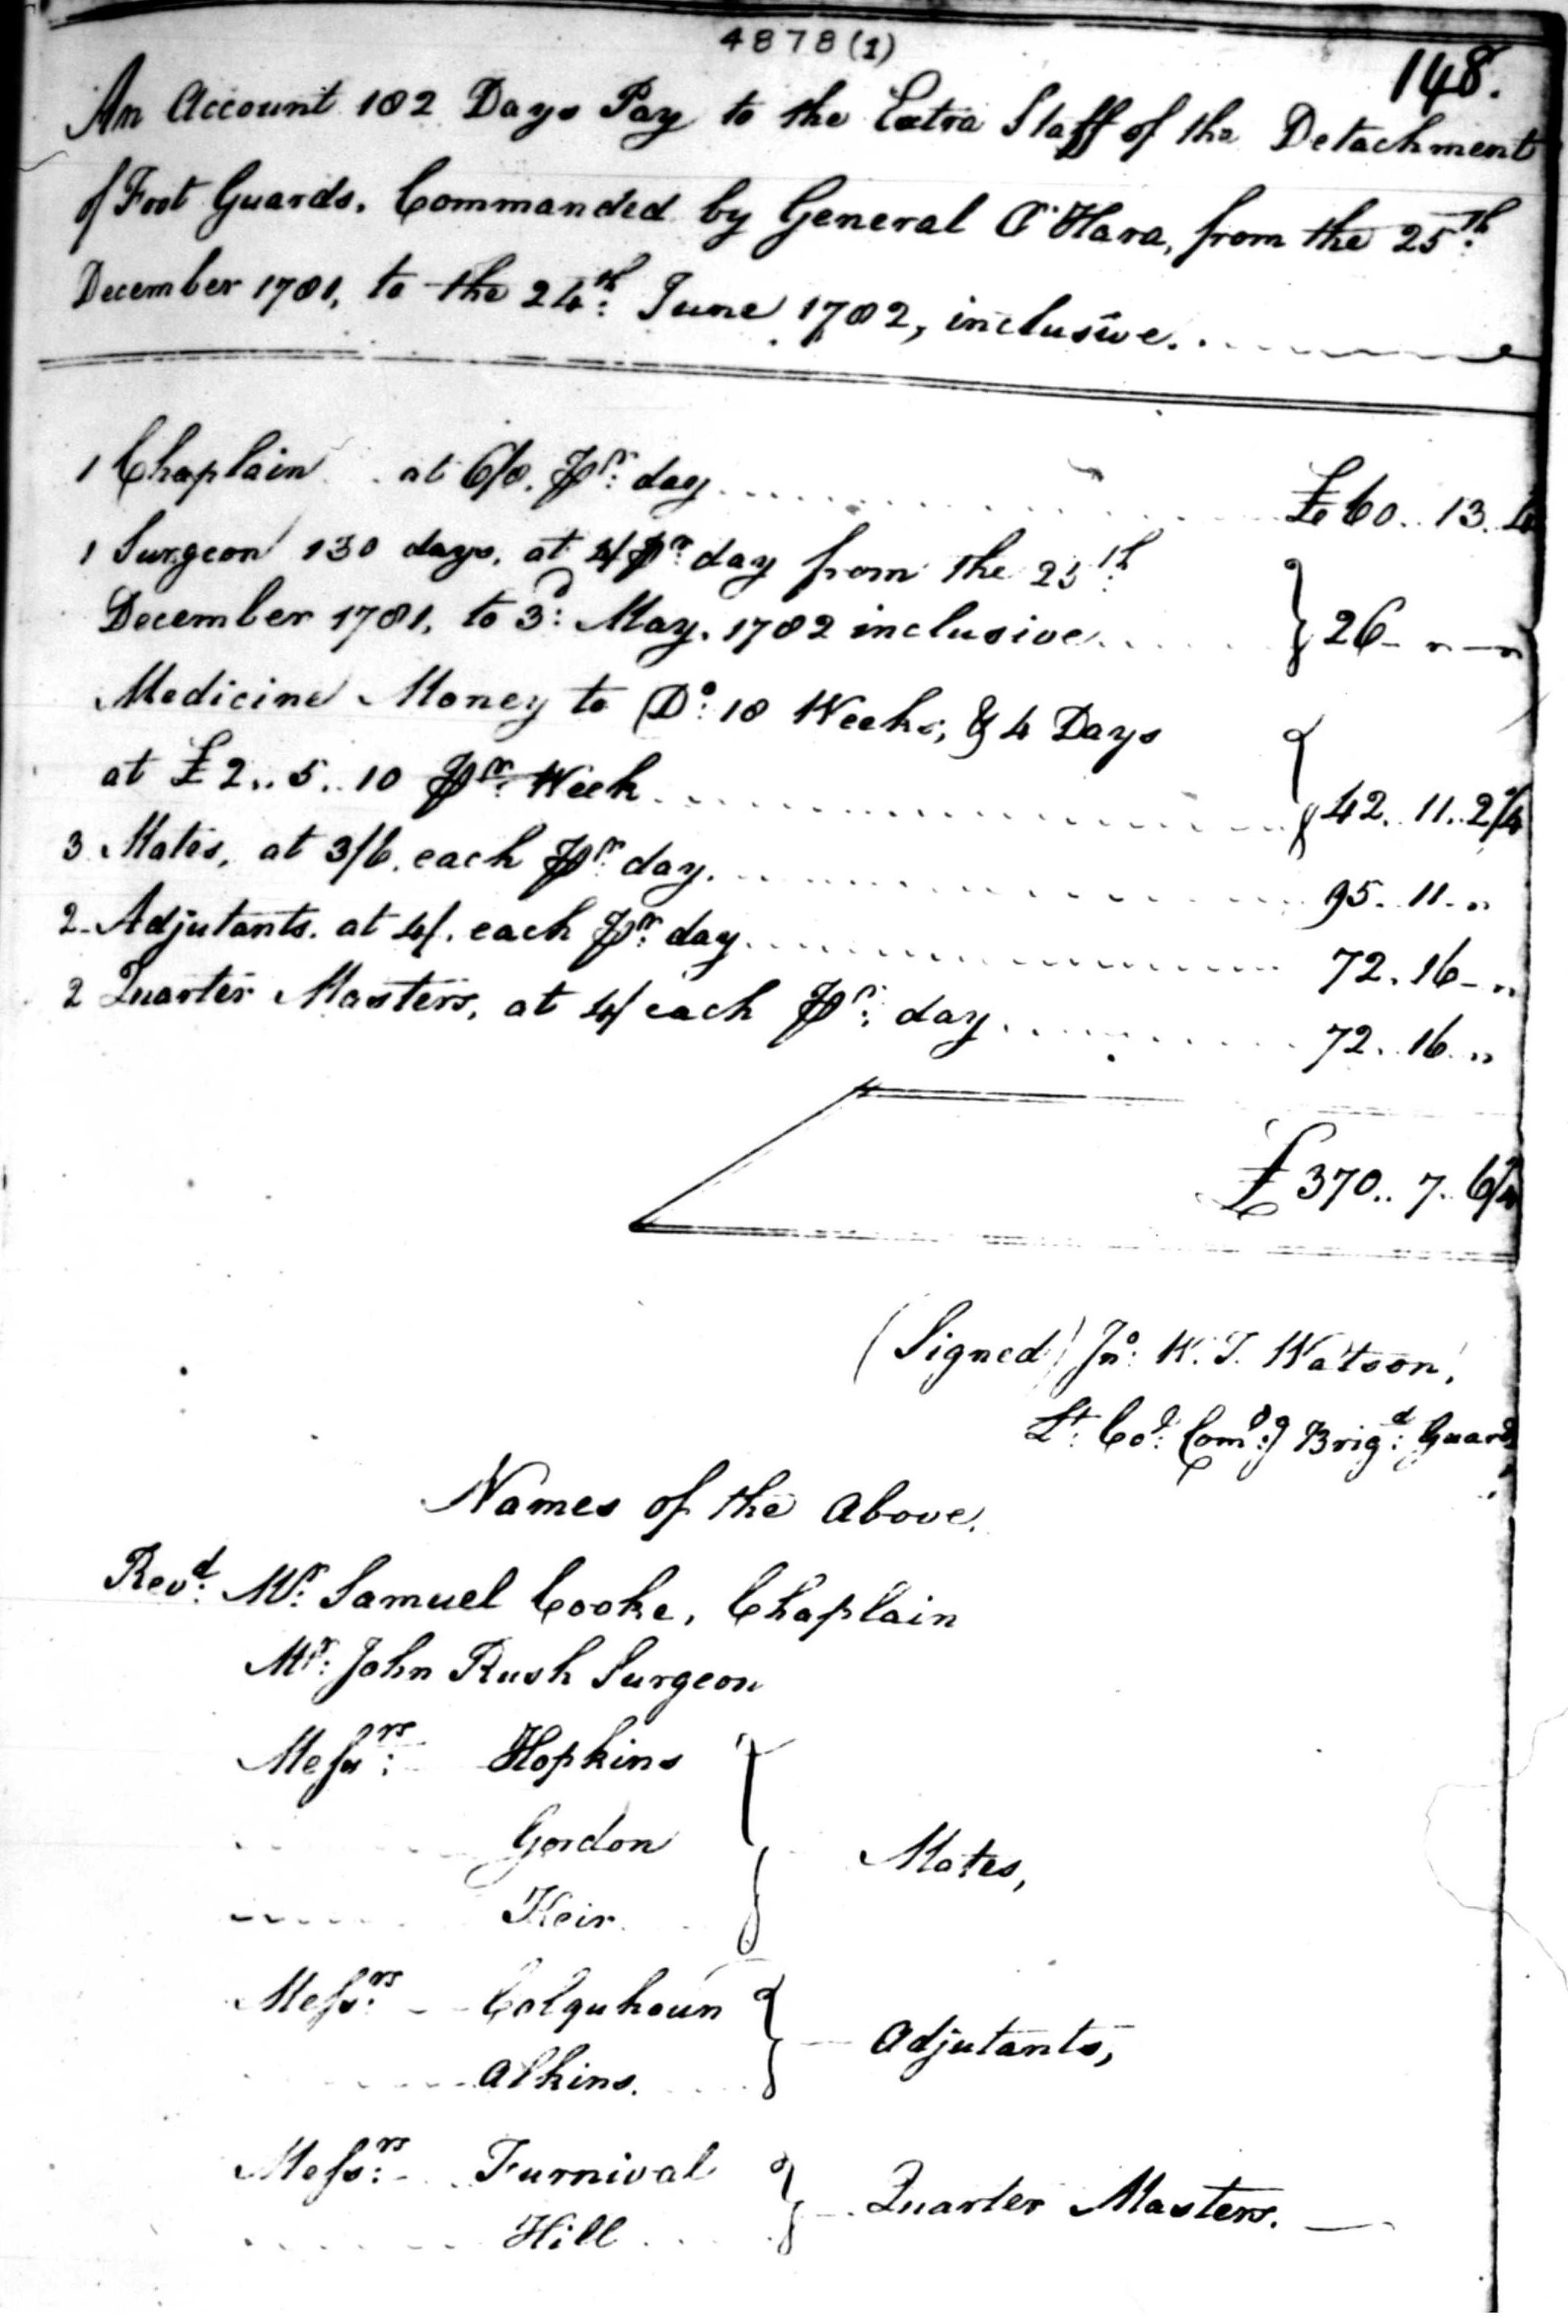 4878(1)
148.
An Account 182 Days Pay to the Extra Staff of the Detachment
of Foot Guards. Commanded by General O'Hara, from the 25th:
December 1781, to the 24th: June 1782, inclusive.
1 Chaplain at 6/8. Pr: day £60.. 13. 4
1 Surgeon 130 days, at 4/ Pr: day from the 25th
December 1781, to 3d: May. 1782 inclusive } 26 - " - "
Medicine Money to Do: 18 Weeks, & 4 Days
at £2.. 5.. 10 Pr: Week } 42.. 11.. 2¼
3 Mates, at 3/6. each Pr: day. 95. 11 - "
2 - Adjutants. at 4/. each Pr: day 72. 16 - "
2 Quarter Masters, at 4/ each Pr: day 72. 16 "
£370.. 7.. 6¼
(Signed) Jno: W. T. Watson,
Lt: Col: Comdg Brigd: Guards
Names of the Above.
Revd: Mr: Samuel Cooke, Chaplain
Mr: John Rush Surgeon
Messrs: Hopkins
Gordon } Mates,
Keir
Messrs: Colquhoun
Alkins. } Adjutants,
Messrs: Furnival
Hill } Quarter Masters.